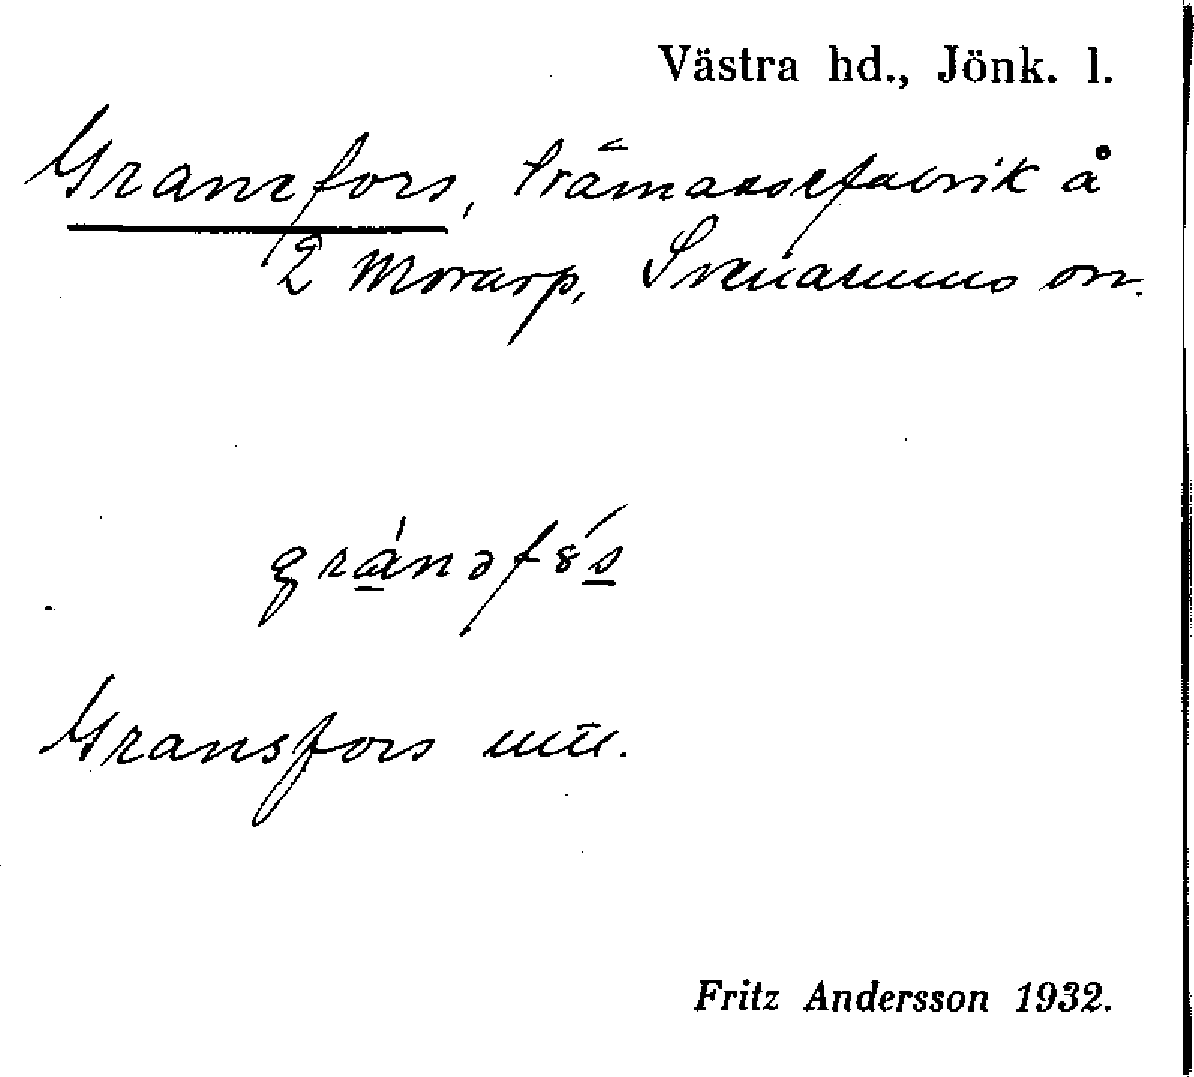 Västra hd., Jönk. l.
Granefors, Trämassefabrik å
2 Morarp, Svenarums sn.
gránəfȣ́s
Gransfors
Fritz Andersson 1932.